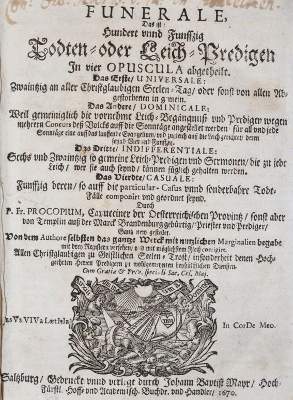 FUNERALE,
Das ist/
Hundert vnnd Funffzig
Todten- oder Leich-Predigen
In vier OPUSCULA abgetheilt.
Das Erste/ UNIVERSALE:
Zwaintzig an aller Christglaubigen Seelen-Tag/ oder sonst von allen Abgestorbenen in gmein.
Das Andere/ DOMINICALE:
Weil gemeiniglich die vornehme Leich-Begängnuß vnd Predigen wegen
mehreren Concurs deß Volcks auff die Sonntäge angestellet werden
Das Dritte/ INDIFFERENTILE:
Sechs vnd Zwaintzig so gemeine Leich-Predigen vnd Sermonen/ die zu jeder
Leich/ wer sie auch seynd/ können füglich gehalten werden.
Das Vierdte/ CASUALE:
Funffzig deren/ so auff die particular-Casus vnnd sonderbahre Todt-
Fäll componirt vnd geordnet seynd.
Durch
P. Fr. PROCOPIUM, Capucciner der Oesterreichischen Provintz/ sonst aber
von Templin auß der Marck Brandenburg gebürtig/ Priester vnd Prediger/
Von dem Authore selbsten das gantze Werck mit nutzlichen Marginalien begabt
Allen Christglaubigen zu Geistlichen Seelen-Trost/ insonderheit denen Hoch-
Cum Gratia & Priv. speciali Sac. Cæs. Maj.
In CorDe Meo.
Saltzburg/ Gedruckt vnnd verlegt durch Johann Baptist Mayr/ Hoch-
Fürstl. Hoff- vnd Academisch. Buchdr. vnd Handler/ 1670.